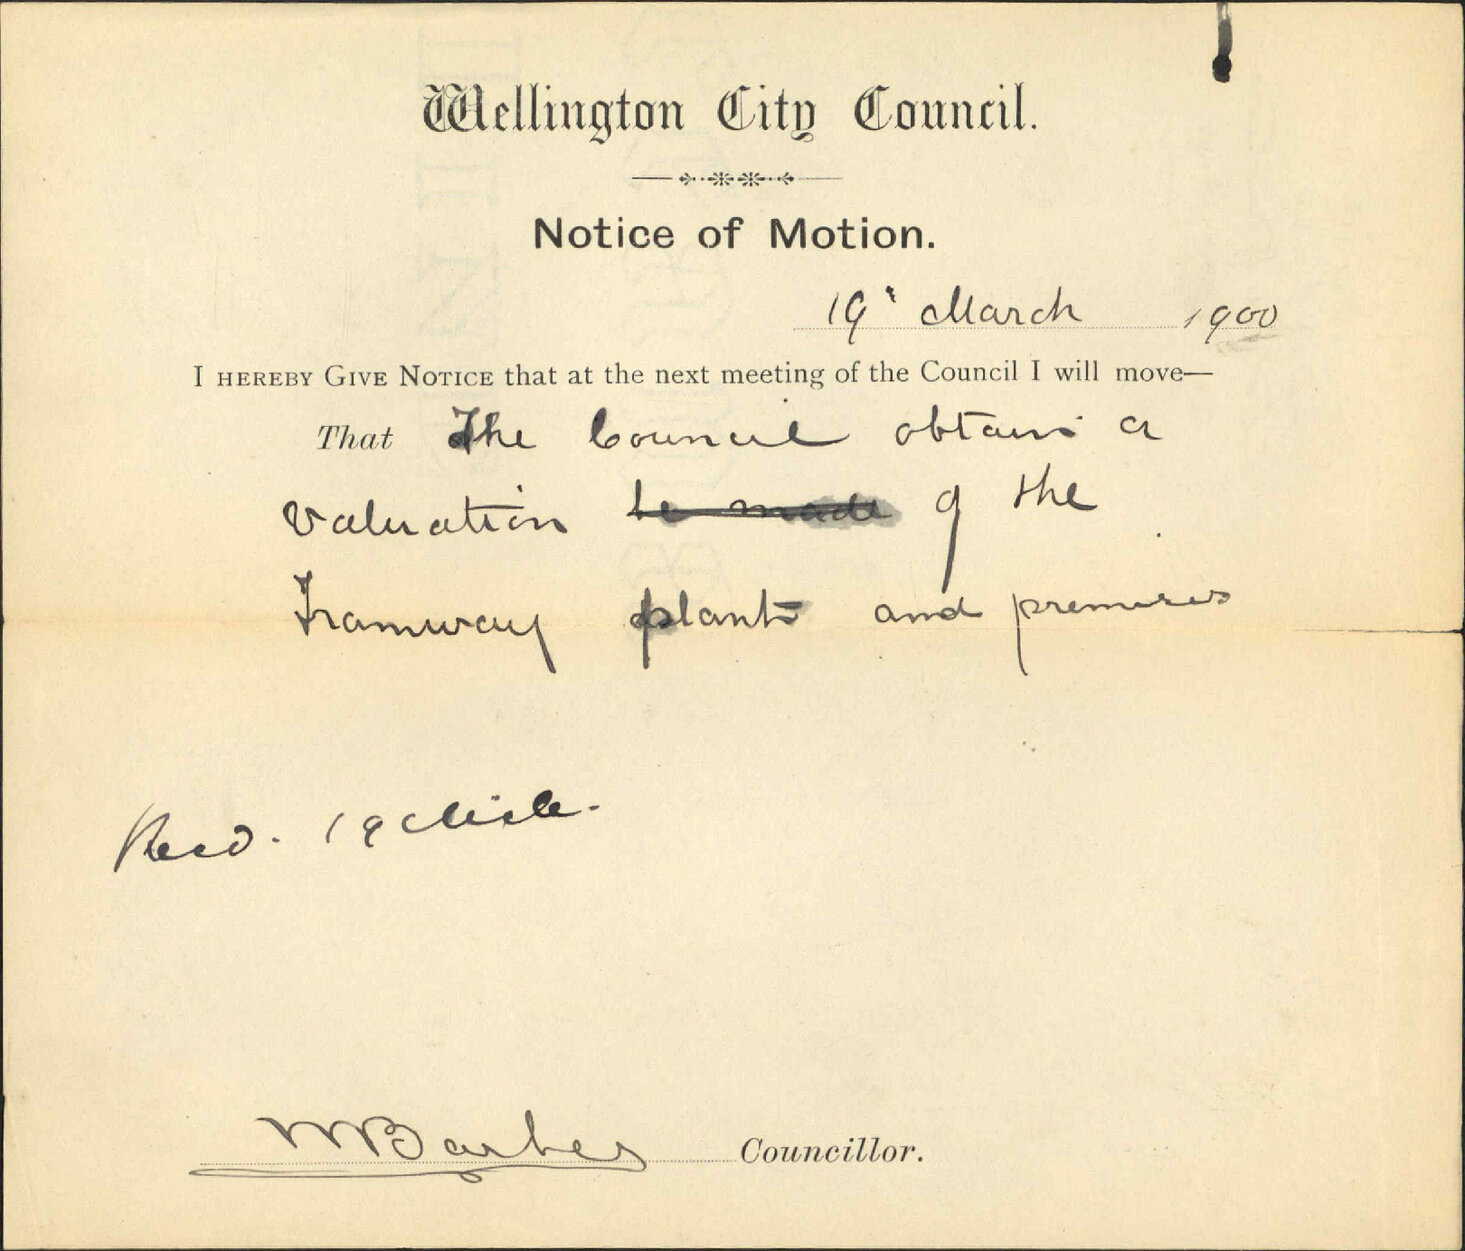 Wellington City Council.
Notice of Motion.
19' March 1900
I HEREBY GIVE NOTICE that at the next meeting of the Council I will move—
That The Council obtain a
Valuation be made of the
Tramway plant and premises
Recd. 19
W Barber Councillor.